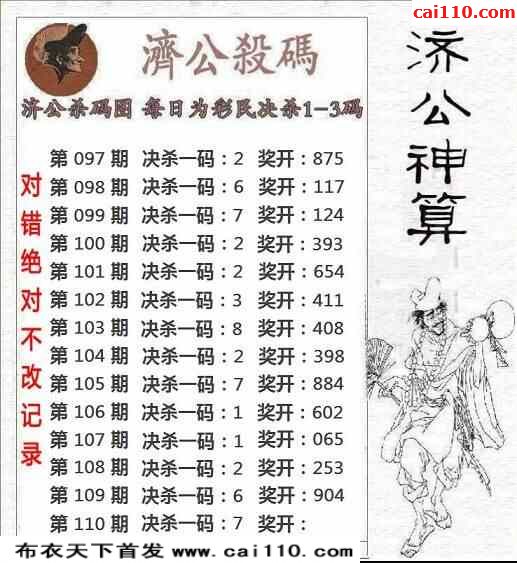 cai110.com
濟公殺碼
济公杀码图 每日为彩民决杀1-3码
济公神算
对错绝对不改记录
第 097 期 决杀一码：2 奖开：875
第 098 期 决杀一码：6 奖开：117
第 099 期 决杀一码：7 奖开：124
第 100 期 决杀一码：2 奖开：393
第 101 期 决杀一码：2 奖开：654
第 102 期 决杀一码：3 奖开：411
第 103 期 决杀一码：8 奖开：408
第 104 期 决杀一码：2 奖开：398
第 105 期 决杀一码：7 奖开：884
第 106 期 决杀一码：1 奖开：602
第 107 期 决杀一码：1 奖开：065
第 108 期 决杀一码：2 奖开：253
第 109 期 决杀一码：6 奖开：904
第 110 期 决杀一码：7 奖开：
布衣天下首发 www.cai110.com